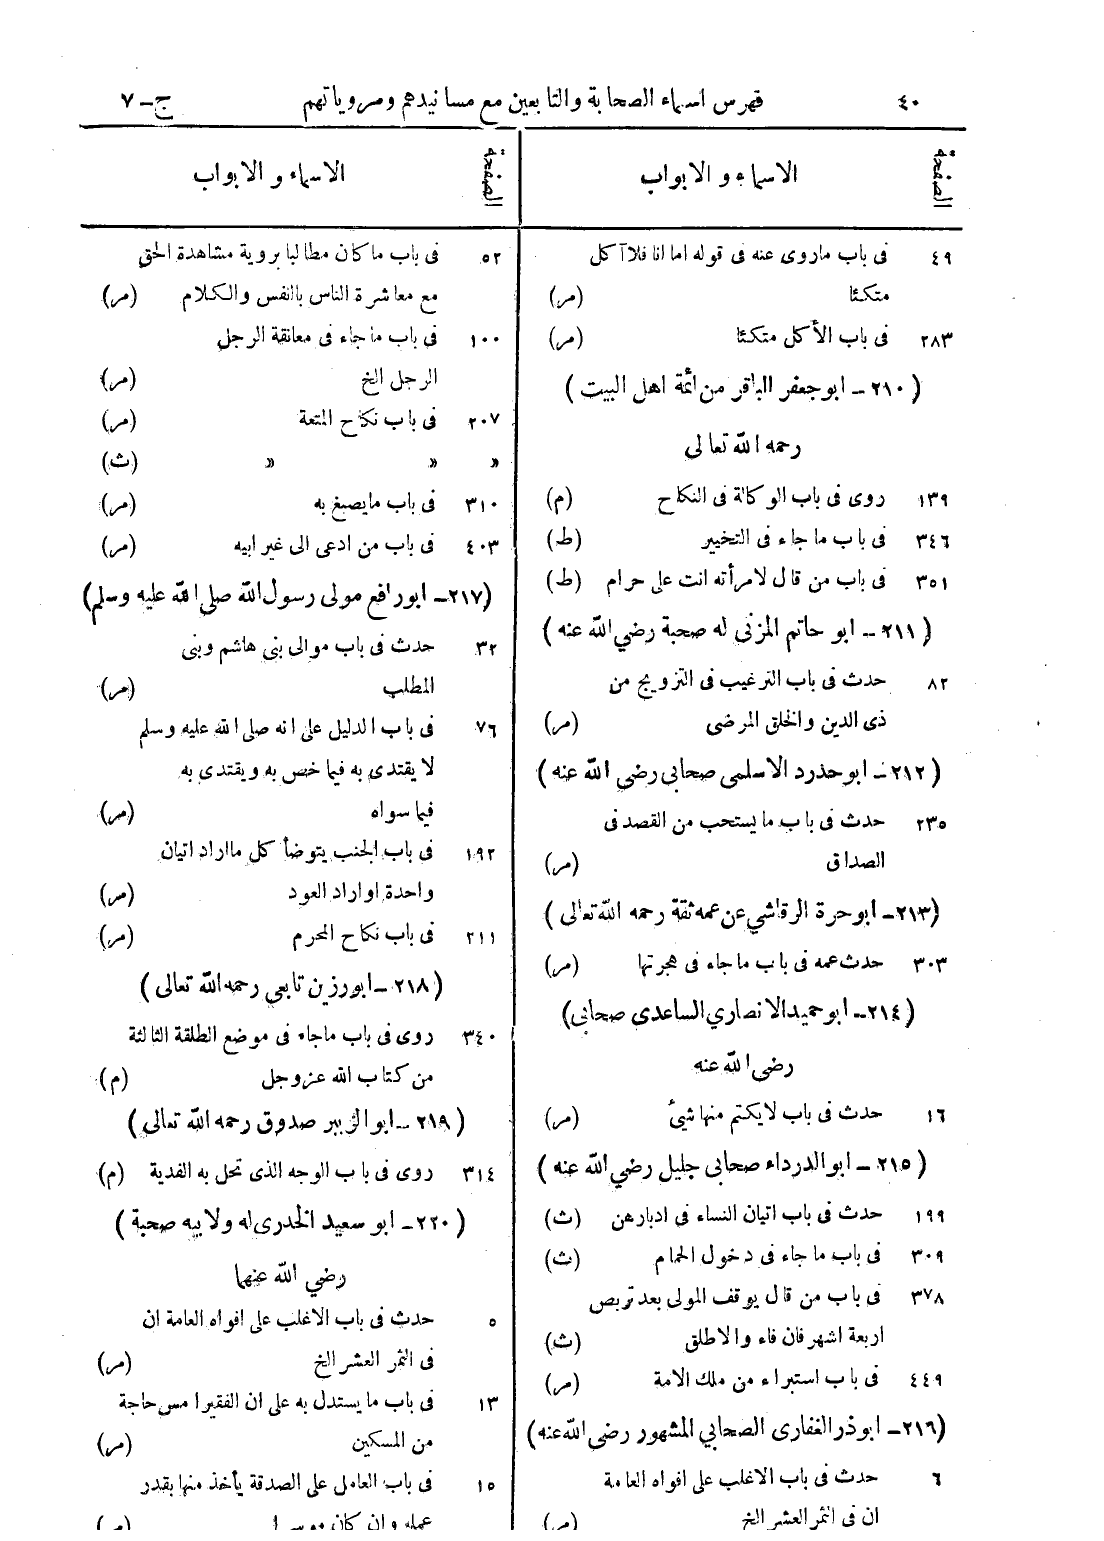 ٤٠ فهرس اسماء الصحابة والتابعين مع مسانيدهم ومروياتهم ج-٧
الصفحة الاسماء و الابواب
٤٩ فى باب ماروى عنه فى قوله اما انا فلا آكل
متكئا (مر)
٢٨٣ فى باب الأكل متكئا (مر)
(٢١٠ - ابوجعفر الباقر من ائمة اهل البيت)
رحمه الله تعالى
١٣٩ روى فى باب الوكالة فى النكاح (م)
٣٤٦ فى باب ما جاء فى التخيير (ط)
٣٥١ فى باب من قال لامرأته انت على حرام (ط)
(٢١١ - ابو حاتم المزنى له صحبة رضي الله عنه)
٨٢ حدث فى باب الترغيب فى التزويج من
ذى الدين والخلق المرضى (مر)
(٢١٢ - ابو حذرد الاسلمى صحابى رضى الله عنه)
٢٣٥ حدث فى باب ما يستحب من القصد فى
الصداق (مر)
(٢١٣- ابو حرة الرقاشي عن عمه ثقة رحمه الله تعالى)
٣٠٣ حدث عمه فى باب ما جاء فى هجرتها (مر)
(٢١٤- ابو حميد الانصاري الساعدى صحابى)
رضى الله عنه
١٦ حدث فى باب لا يكتم منها شئ (مر)
(٢١٥ - ابو الدرداء صحابى جليل رضي الله عنه)
١٩٩ حدث فى باب اتيان النساء فى ادبارهن (ث)
٣٠٩ فى باب ما جاء فى دخول الحمام (ث)
٣٧٨ فى باب من قال يوقف المولى بعد تربص
اربعة اشهر فان فاء والا طلق (ث)
٤٤٩ فى باب استبراء من ملك الامة (مر)
(٢١٦- ابوذر الغفارى الصحابي المشهور رضى الله عنه)
٦ حدث فى باب الاغلب على افواه العامة
ان فى الثمر العشر الخ (مر)
الصفحة الاسماء و الابواب
٥٢ فى باب ما كان مطالبا بروية مشاهدة الحق
مع معاشرة الناس بالنفس والكلام (مر)
١٠٠ فى باب ما جاء فى معانقة الرجل
الرجل الخ (مر)
٢٠٧ فى باب نكاح المتعة (مر)
» » » (ث)
٣١٠ فى باب ما يصبغ به (مر)
٤٠٣ فى باب من ادعى الى غير ابيه (مر)
(٢١٧- ابورافع مولى رسول الله صلى الله عليه وسلم)
٣٢ حدث فى باب موالى بنى هاشم وبنى
المطلب (مر)
٧٦ فى باب الدليل على انه صلى الله عليه وسلم
لا يقتدى به فيما خص به ويقتدى به
فيما سواه (مر)
١٩٢ فى باب الجنب يتوضأ كل ما اراد اتيان
واحدة او اراد العود (مر)
٢١١ فى باب نكاح المحرم (مر)
(٢١٨ - ابورزين تابعي رحمه الله تعالى)
٣٤٠ روى فى باب ماجاء فى موضع الطلقة الثالثة
من كتاب الله عزوجل (م)
(٢١٩ - ابو الزبير صدوق رحمه الله تعالى)
٣١٤ روى فى باب الوجه الذى تحل به الفدية (م)
(٢٢٠- ابو سعيد الخدرى له ولابيه صحبة)
رضي الله عنهما
٥ حدث فى باب الاغلب على افواه العامة ان
فى الثمر العشر الخ (مر)
١٣ فى باب ما يستدل به على ان الفقير امس حاجة
من المسكين (مر)
١٥ فى باب العامل على الصدقة يأخذ منها بقدر
عمله وان كان موسرا (مر)